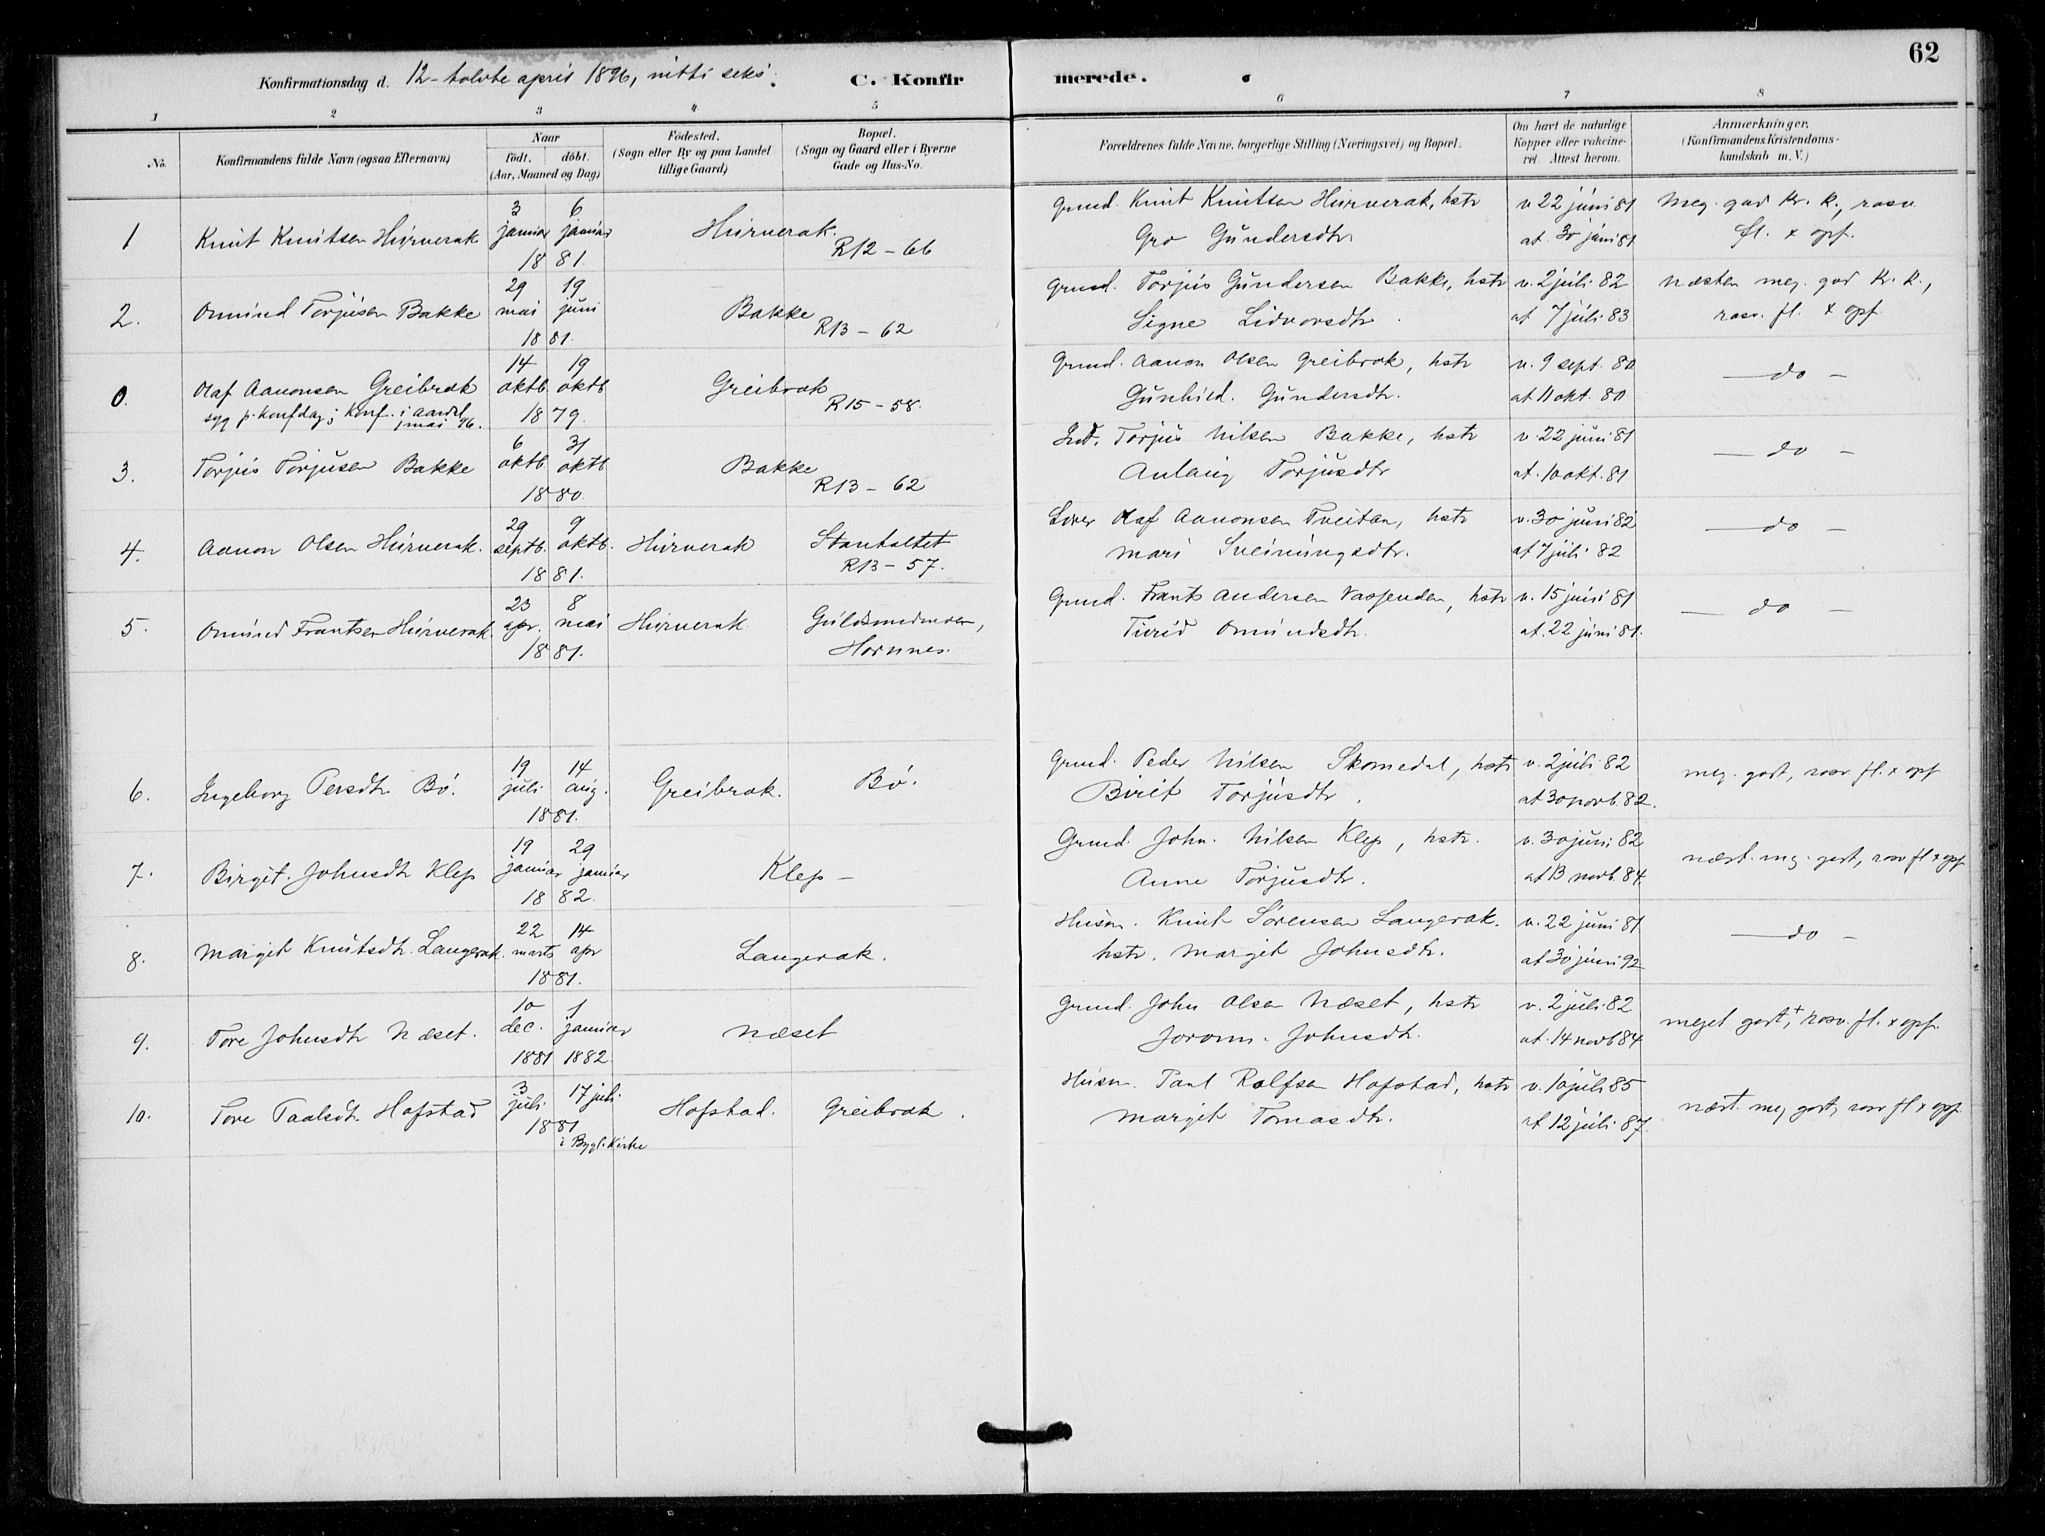 62
Konfirmationsdag d. 12-tolvte april 1896, nitti seks. C. Konfirmerede.
1 2 3 4 5 6 7 8
No. Konfirmandens fulde Navn (ogsaa Efternavn) Naar født. døbt. (Aar, Maaned og Dag) Fødested. (Sogn eller By og paa Landet tillige Gaard) Bopæl. (Sogn og Gaard eller i Byerne Gade og Hus-No. Forældrenes fulde Navne, borgerlige Stilling (Næringsvei) og Bopæl. Om havt de naturlige Kopper eller vakcineret. Attest herom. Anmærkninger. (Konfirmandens Kristendomskundskab m. V.)
1 Knut Knutsen Hürverak 3 januar 6 januar 1881. Hürverak. R12-66 Grund. Knut Knutsen Hürverak, hstr Gro Gundersdtr v. 22 juni 81 at. 30 juni 81 Meg. god kr. k., rosv. fl. x opf.
2. Omund Torjusen Bakke 29 mai 19 juni 1881. Bakke R13-62 Grund. Torjus Gundersen Bakke, hstr Signe Lidvorsdtr. v. 2 juli 82 at 7 juli 83 næsten meg. god kr. k., rosv. fl. x opf.
0. Olaf Aanonsen Greibrok 14 oktb. 19 oktb 1879. Greibrok R15-58. Grund. Aanon Olsen Greibrok, hstr Gunhild. Gundersdtr. v. 9 sept. 80 at 11 okt. 80 — do —
syg p. konfdag; konf. i aardal mai 96.
3. Torjus Torjusen Bakke 6 oktb. 31 oktb 1880. Bakke R13-62 Ind. Torjus Nilsen Bakke, hstr Anlaug Torjusdtr v. 22 juni 81 at. 10 okt. 81 — do —
4. Aanon Olsen Hürverak. 29 septb. 9 oktb. 1881. Hürverak R13-57. Olaf Aanonsen Tveitan, hstr Mari Sveinungsdtr. v. 30 juni 82 at 7 juli 82 — do —
5. Omund Frantsen Hürverak. 23 apr. 8 mai 1881. Hürverak Guldsmedmoen, Hornnes. Grund. Frants Andersen Vassenden, hstr Turid Omundsdtr. v. 15 juni 81 at. 22 juni 81. — do —
6. Ingeborg Persdtr. Bø. 19 juli 14 aug. 1881. Greibrok. Bø. Grund. Peder Nilsen Skomedal, hstr Birit Torjusdtr. v. 2 juli 82 at 30 novb. 82. meg. godt, rosv fl. x opf
7. Birgit. Johnsdtr Klep 19 januar 29 januar 1882. Klep — Grund. John. Nilsen Klep, hstr. Anne Torjusdtr. v. 30 juni 82 at 13 novb. 84. næst. meg. godt, rosv fl x opf
8. Margit Knutsdtr. Langerak. 22 marts 14 apr 1881. Langerak. Husm. Knut Sørensen Langerak. hstr. Margit Johnsdtr. v. 22 juni 81 at 30 juni 92 — do —
9. Tore Johnsdtr Næset. 10 dec. 1881 1 januar 1882. Næset Grund. John Olsen Næset, hstr Joronn. Johnsdtr. v. 2 juli 82 at. 14 novb 84 meget godt+, rosv. fl. x opf.
10. Tore Taalsdtr. Hofstad 3 juli 17 juli 1881 i Bygl. Kirke Hofstad. Greibrok. Husm. Taal Rolfsen Hofstad, hstr Margit Tomasdtr. v. 10 juli 85 at 12 juli 87. næst. meg godt, rosv fl x opf